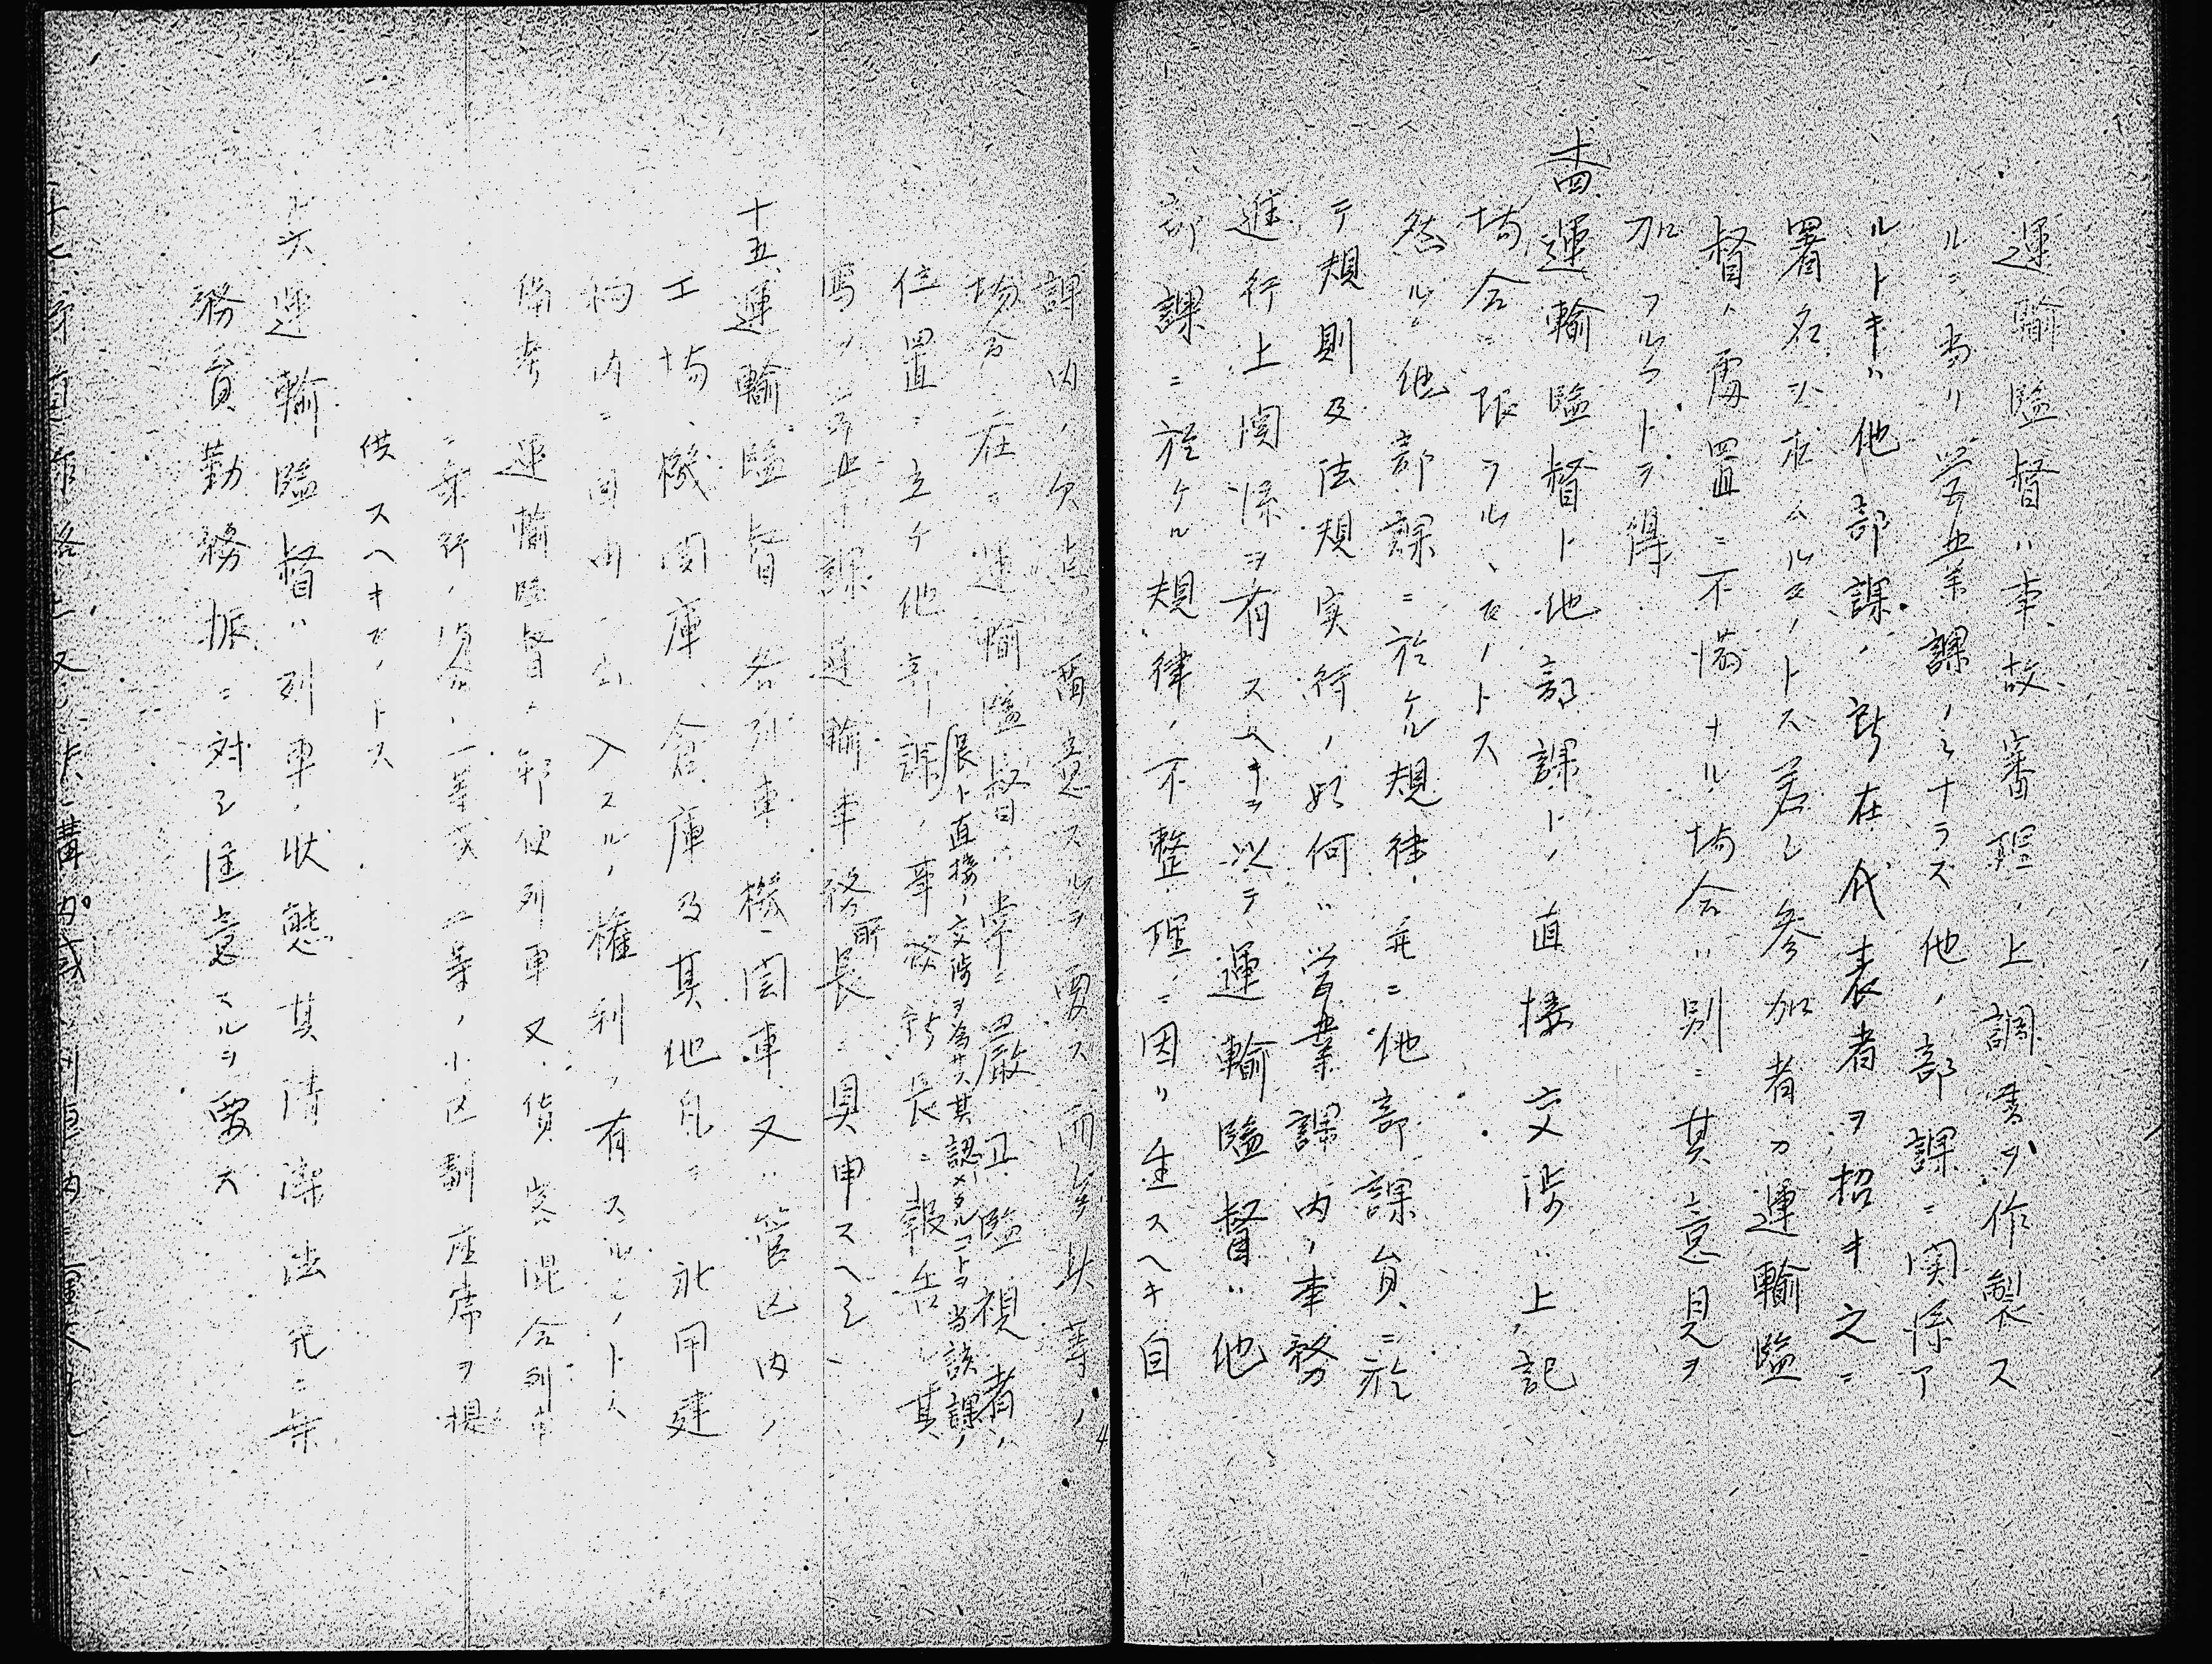 運輸監督ハ事故審理ノ上調書ヲ作製ス
ルニ当リ営業課ノミナラス他ノ部課ニ関係ア
ルトキハ他部課ノ所在代表者ヲ招キ之ニ
署名ヲ求ムルモノトス若シ参加者カ運輸監
督ノ處置ニ不満ナル場合ハ別ニ其意見ヲ
加フルコトヲ得
十四、運輸監督ト他部課トノ直接交渉ハ上記
場合ニ限ラルヽモノトス
然ルニ他部課ニ於ケル規律並ニ他部課員ニ於
テ規則及法規実行ノ如何ハ営業課内ノ事務
進行上関係ヲ有スヘキヲ以テ運輸監督ハ他
部課ニ於ケル規律ノ不整理ニ因リ生スヘキ自
課内ノ欠点ニ留意スルヲ要ス而シテ此等ノ
場合ニ在テ運輸監督ハ常ニ厳正監視者ノ
位置ニ立チ他部課ノ事務所長ニ報告シ其
展ト直接ノ交渉ヲ為サス其認メタルコトヲ当該課ノ
写ノ 課運輸事務所長ニ具申スヘシ
十五、運輸監督ハ各列車機関車又ハ管区内ノ
工場、機関庫、倉庫及其他凡ユル 建
構内ニ自由ニ出入スルノ権利ヲ有スルモノトス
備考 運輸監督ハ郵便列車又ハ貨客混合列車
ニ乗行ノ場合ハ一等或ハ二等ノ小区劃座席ヲ提
供スヘキモノトス
十六、運輸監督ハ列車ノ状態其清潔法並ニ乗
務員勤務振ニ対シ注意スルヲ要ス